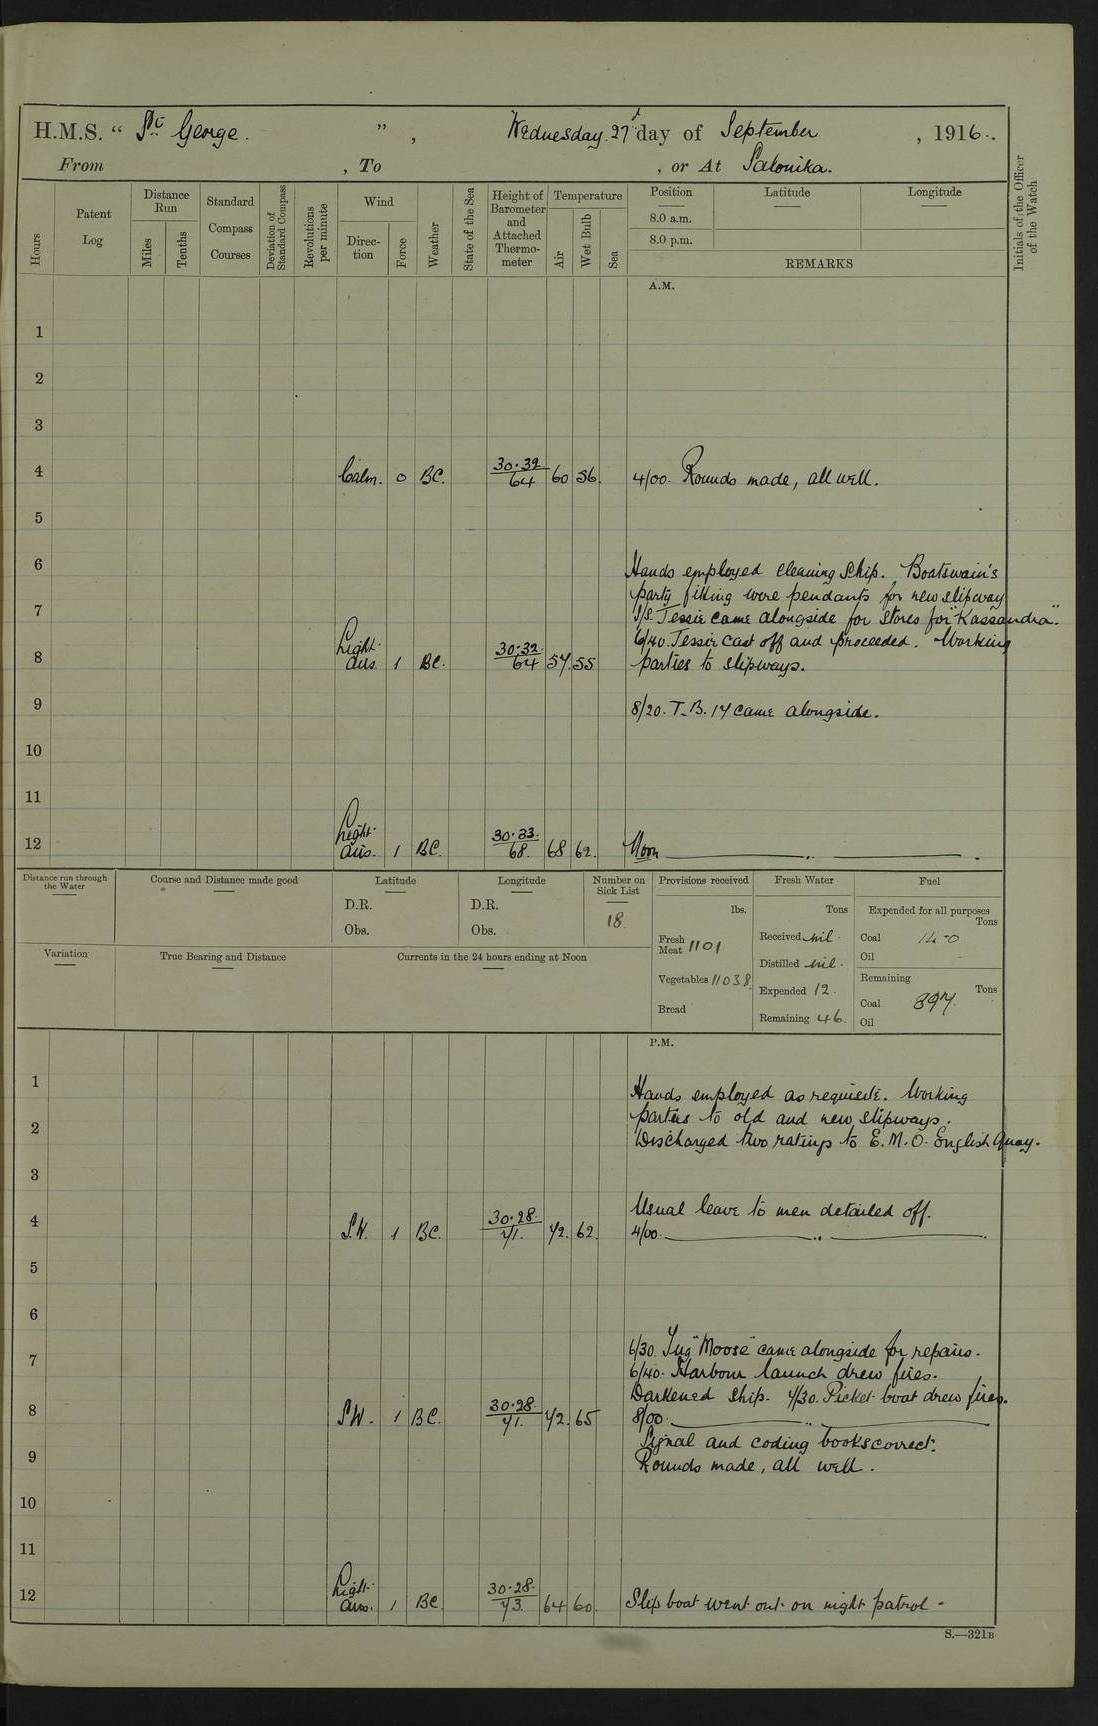 H.M.S. “ St. George. ” , Wednesday. 27th day of September , 1916.
From , To , or At Salonika.
Hours
Patent Log
Distance Run
Miles
Tenths
Standard Compass Courses
Deviation of Standard Compass
Revolutions per minute
Wind
Direction
Force
Weather
State of the Sea
Height of Barometer and Attached Thermometer
Temperature
Air
Wet Bulb
Sea
Position Latitude Longitude
8.0 a.m.
8.0 p.m.
REMARKS
Initials of the Officer of the Watch
A.M.
1
2
3
4 Calm. 0 BC. 30.32/64 60 56. 4/00. Rounds made, all well.
5
6 Hands employed cleaning Ship. Boatswain's
party fitting wire pendants for new slipway
7 S/S. Tessie came alongside for stores for "Kassandra".
6/40. Tessie cast off and proceeded. Working
8 Light airs. 1 BC. 30.32/64 57. 55 parties to slipways.
9 8/20. T.B. 17 came alongside.
10
11
12 Light airs. 1 BC. 30.33/68. 68 62. Noon
Distance run through the Water
Course and Distance made good
Latitude
D.R.
Obs.
Longitude
D.R.
Obs.
Number on Sick List
18
Provisions received
lbs.
Fresh Meat 1101
Vegetables 11038
Bread
Fresh Water
Tons
Received nil.
Distilled nil.
Expended 12.
Remaining 46.
Fuel
Expended for all purposes
Tons
Coal 14-0
Oil
Remaining
Tons
Coal 897.
Oil
Variation
True Bearing and Distance
Currents in the 24 hours ending at Noon
P.M.
1 Hands employed as requisite. Working
parties to old and new slipways.
2 Discharged two ratings to E.M.O. English Quay.
3
Usual leave to men detailed off.
4 S.W. 1 BC. 30.28./71. 72. 62. 4/00.
5
6
7 6/30. Tug "Moose" came alongside for repairs.
6/40. Harbour launch drew fires.
Darkened Ship. 7/30. Picket boat drew fires.
8 S.W. 1 BC. 30.28./71. 72. 65 8/00.
Signal and coding books correct.
9 Rounds made, all well.
10
11
12 Light airs. 1 BC. 30.28./73. 64 60. Slip boat went out on night patrol.
S.—321B